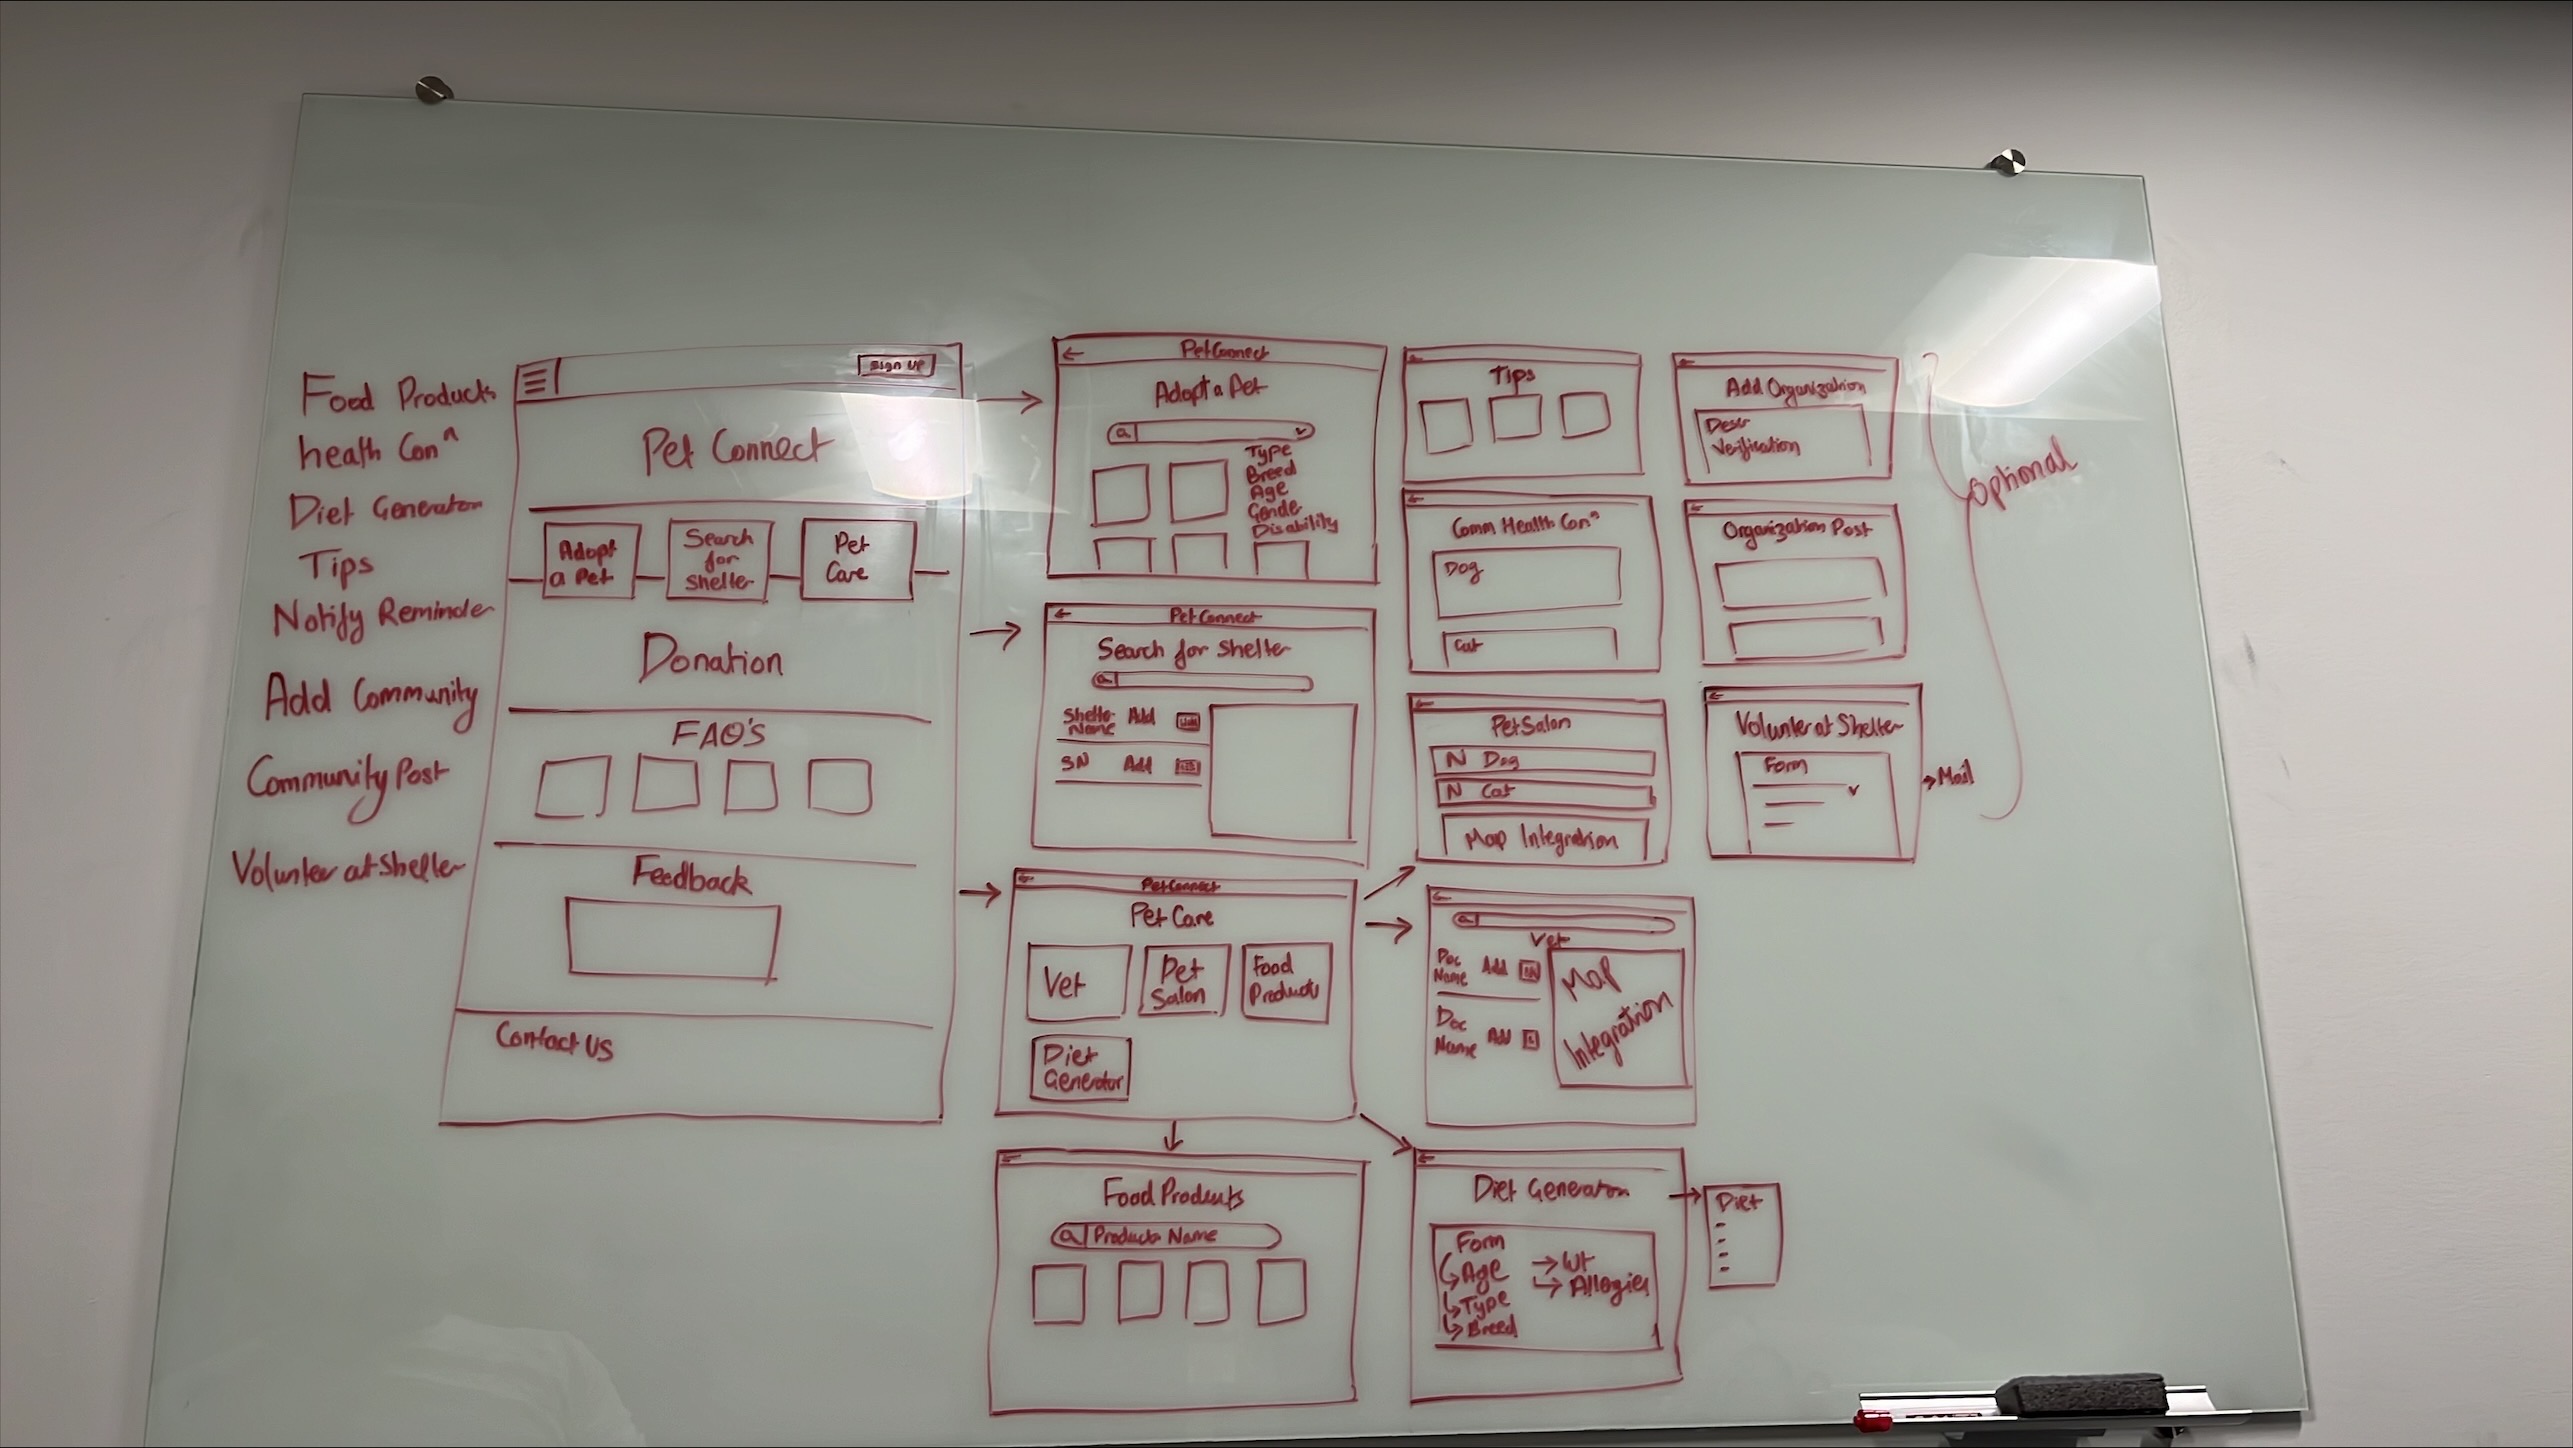 Food Products
health Conⁿ
Diet Generator
Tips
Notify Reminder
Add Community
Community Post
Volunter at Shelter
Sign UP
Pet Connect
Adopt
a Pet
Search
for
Shelter
Pet
Care
Donation
FAQ'S
Feedback
Contact US
Pet Connect
Adopt a Pet
Type
Breed
Age
Gender
Disability
Pet Connect
Search for Shelter
Shelter
Name
Add
SN
Add
Pet Connect
Pet Care
Vet
Pet
Salon
Food
Products
Diet
Generator
Food Products
Products Name
Tips
Comm Health Conⁿ
Dog
Cat
Pet Salon
N Dog
N Cat
Map Integration
Vet
Doc
Name
Add
Doc
Name
Add
Map
Integration
Diet Generator
Form
Age
Type
Breed
Wt
Allergies
Diet
Add Organization
Descr
Verification
Organization Post
Volunter at Shelter
Form
Mail
Optional